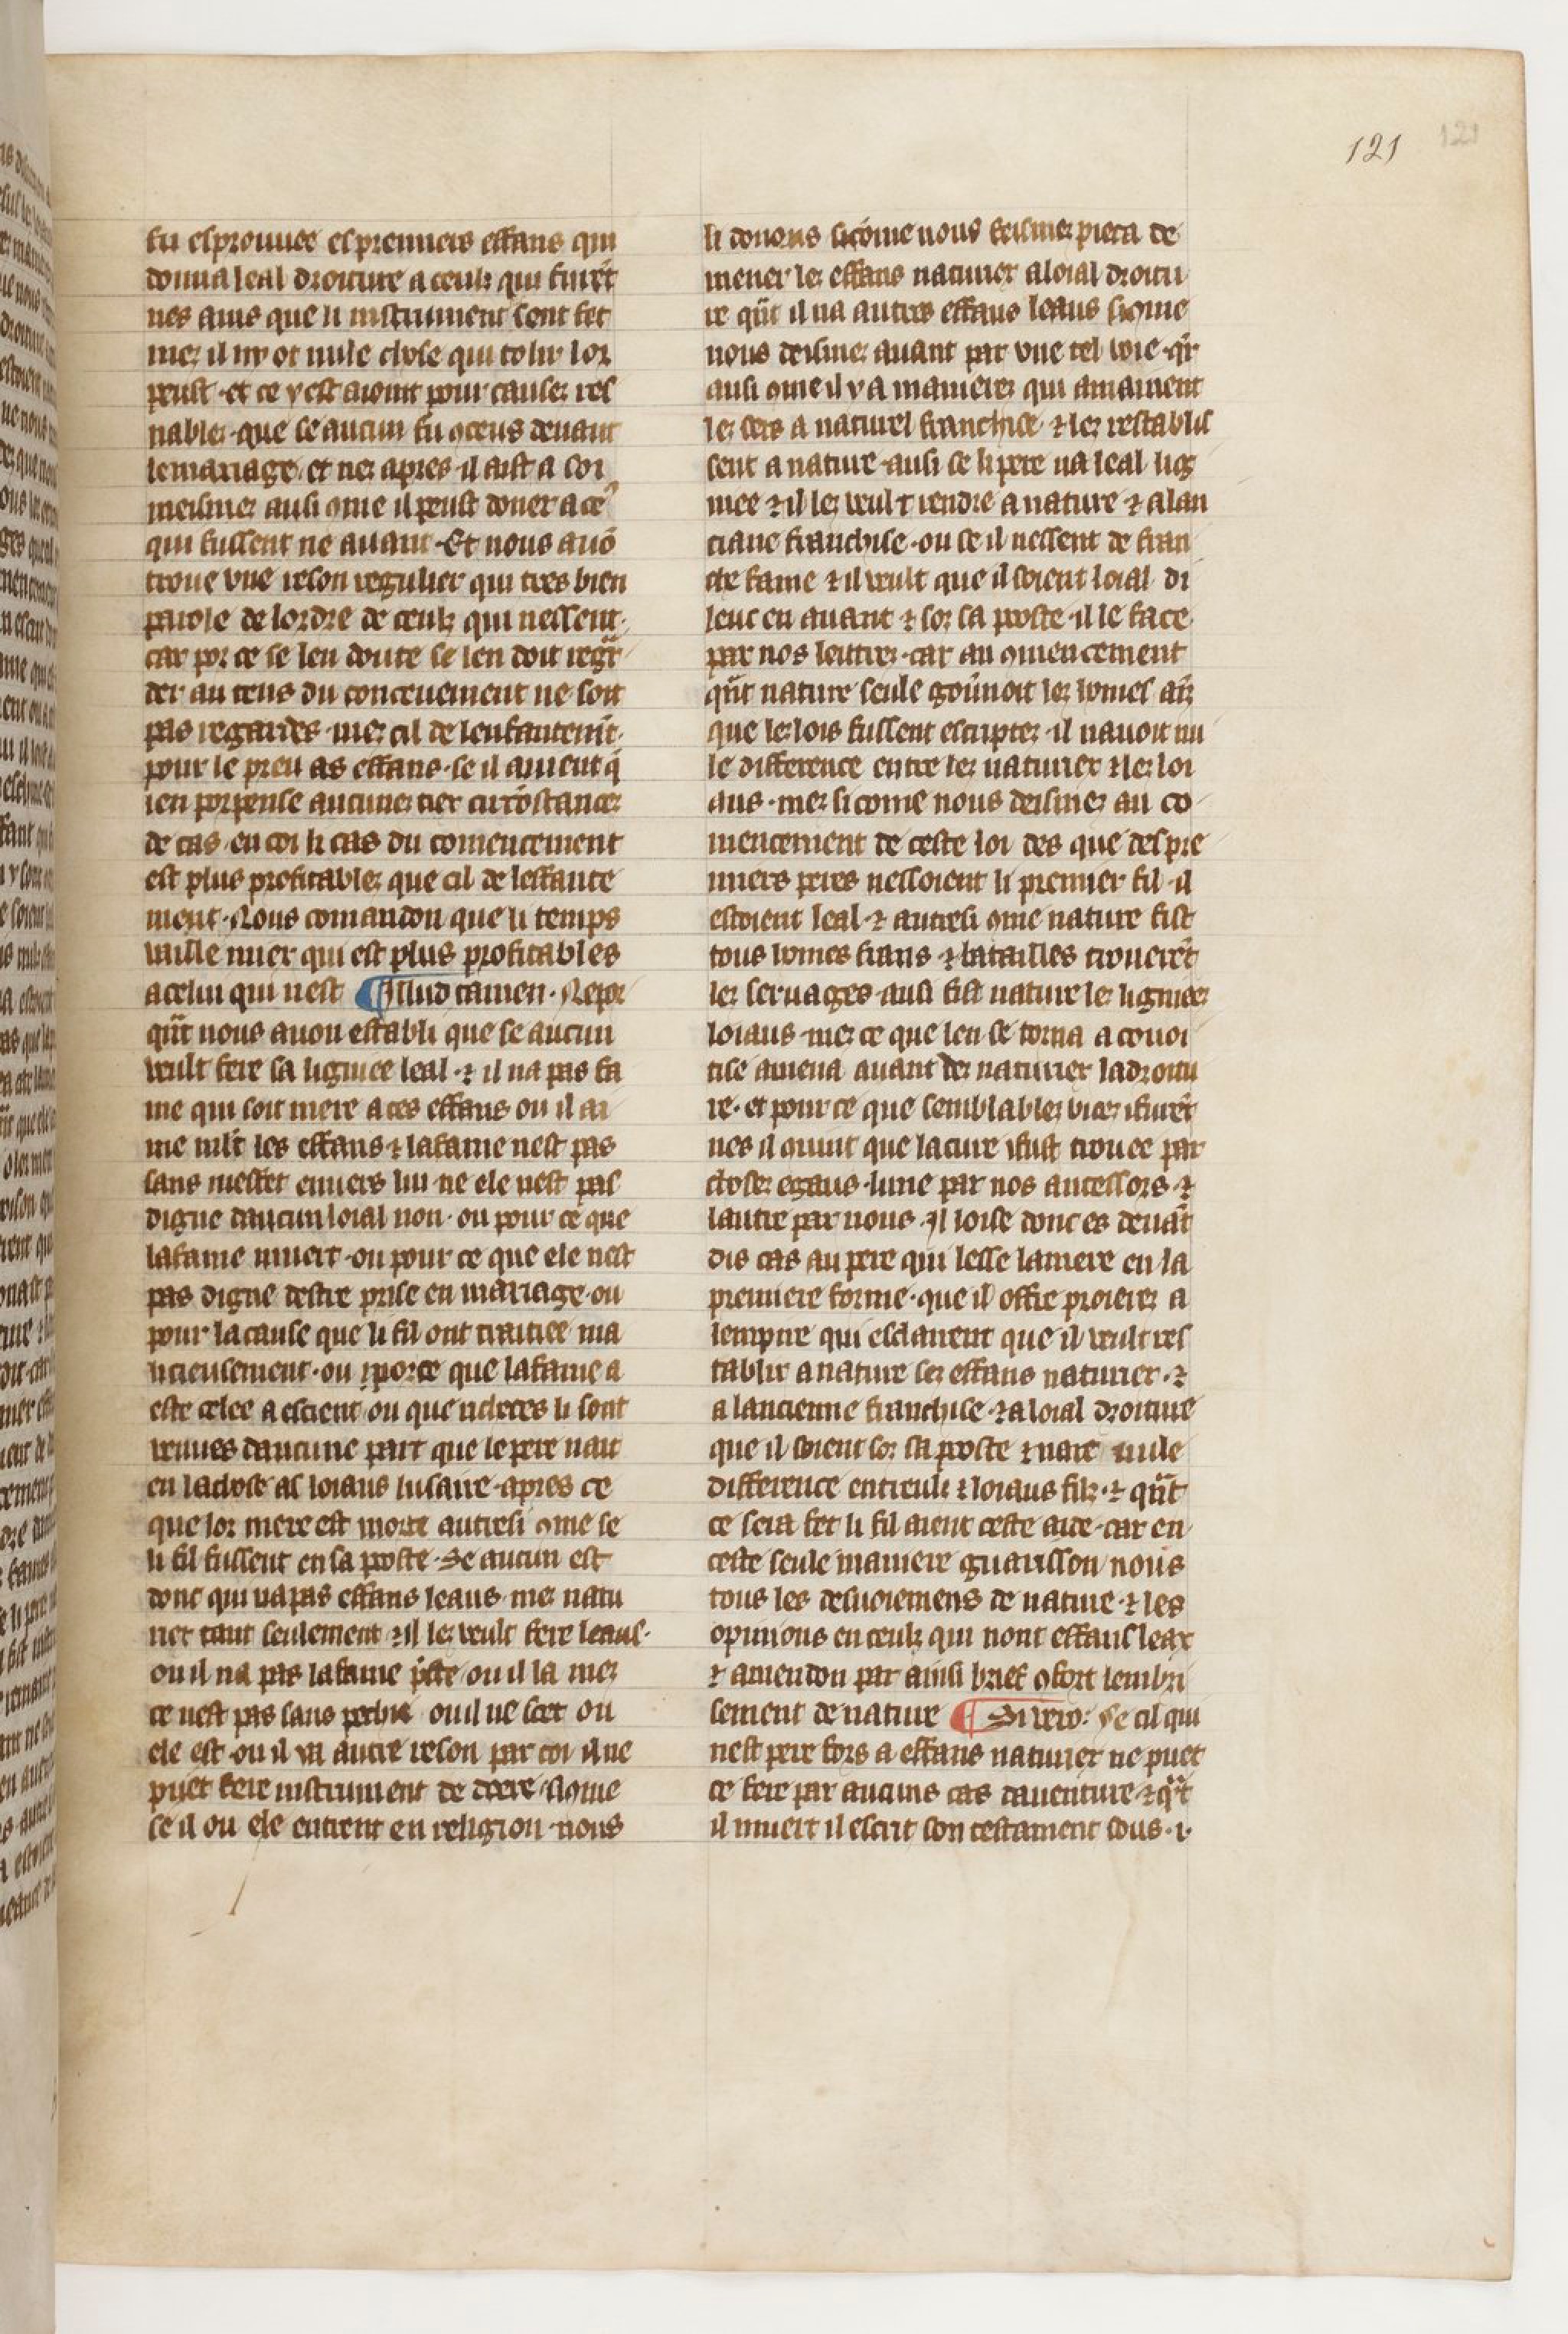 121 121
fu esprouuee es premiers effans qui
donna leal droiture a ceulz qui furẽt
nes ains que li instrument sont fet
mez il ny ot nule chose qui tolir lor
peust · et ce y est aioint pour causez res
nablez · que se aucun fu conceus deuant
le mariage · et nez apres · il aist a soi
meismez ausi ꝯme il peust doner a ce
qui fussent ne auant · Et nous auõ
troue vne reson regulier qui tres bien
parole de lordre de ceulz qui nessent ·
car por ce se len doute se len doit regar
der au tens du conceuement ne soit
pas regardes · mez cil de lenfantemẽt ·
pour le preu as effans · se il auient q̃
len porpense aucunez tiex circõstancez
de cas en coi li cas du comencement
est plus profitablez que cil de leffante
ment · Nous comandon que li temps
vaille miex qui est plus profitables
a celui qui nest ¶ Illud tamen · Ne por
qũt nous auon establi que se aucun
veult fere sa lignee leal · ⁊ il na pas fa
me qui soit mere a ces effans ou il ai
me mlt les effans ⁊ la fame nest pas
sans meffet enuers lui · ne ele nest pas
digne daucun loial non · ou pour ce que
la fame muert · ou pour ce que ele nest
pas digne destre prise en mariage · ou
pour la cause que li fil ont traitiee ma
licieusement · ou por ce que la fame a
este celee a escient ou que richeces li sont
venues daucune part que le pere nait
en la chose as loiaus lusaire · apres ce
que lor mere est morte autresi ꝯme se
li fil fussent en sa poste · Se aucun est
donc qui na pas effans leaus · mez natu
rex tant seulement ⁊ il lez veult fere leaus ·
ou il na pas la fame p̃ste · ou il la mez
ce nest pas sans pechie ou il ne scet ou
ele est · ou il va autre reson par coi il ne
puet fere instrument de doere · si ꝯme
se il ou ele entrent en religion · nous
li donons si cõme nous deismez pieca de
mener lez effans naturiex a loial droitu
re qũt il na autres effans leaus si ꝯme
nous deismez auant par vne tel voie · qr̃
ausi ꝯme il y a manierez qui amainent
lez sers a naturel franchise · ⁊ lez restablis
sent a nature · ausi se li pere na leal lig
niee ⁊ il lez veult rendre a nature ⁊ a lan
ciane franchise · ou se il nessent de fran
che fame ⁊ il veult que il soient loial di
leuc en auant ⁊ soz sa poste · il le face
par nos lettrez · car au ꝯmencement
qũt nature seule gouũnoit lez homes ainz
que lez lois fussent escriptez · il nauoit nu
le difference entre lez naturiex ⁊ lez loi
aus · mez si come nous deismez au co
mencement de ceste loi des que des pre
miers peres nessoient li premier fil · il
estoient leal · ⁊ autresi ꝯme nature fist
tous homes frans · ⁊ batailles trouerẽt
lez seruages · ausi fist nature lez ligniez
loiaus · mez ce que len se torna a couoi
tise amena auant dez naturiex la droitu
re · et pour ce que semblablez vicez i furẽt
nes il ꝯuint que la cure i fust trouee par
chosez egaus · lune par nos ancessors · ⁊
lautre par nous · Il loise donc es deuãt
dis cas au pere qui lesse la mere en la
premiere forme · que il offre proierez a
lempire qui esclairent que il veult res
tablir a nature sez effans naturiex · ⁊
a lancienne franchise · ⁊ a loial droiture
que il soient soz sa poste ⁊ naie nule
difference entreulz ⁊ loiaus filz · ⁊ qũt
ce sera fet li fil aient ceste aide · car en
ceste seule maniere guarisson nous
tous les desuoiemens de nature · ⁊ les
opinions en ceulz qui nont effans leax
⁊ amendon par ainsi brief ꝯfort lembri
sement de nature ¶ Si vero · Se cil qui
nest pere fors a effans naturiex ne puet
ce fere par aucuns cas dauenture · ⁊ qũt
il muert il escrit son testament sous · i ·